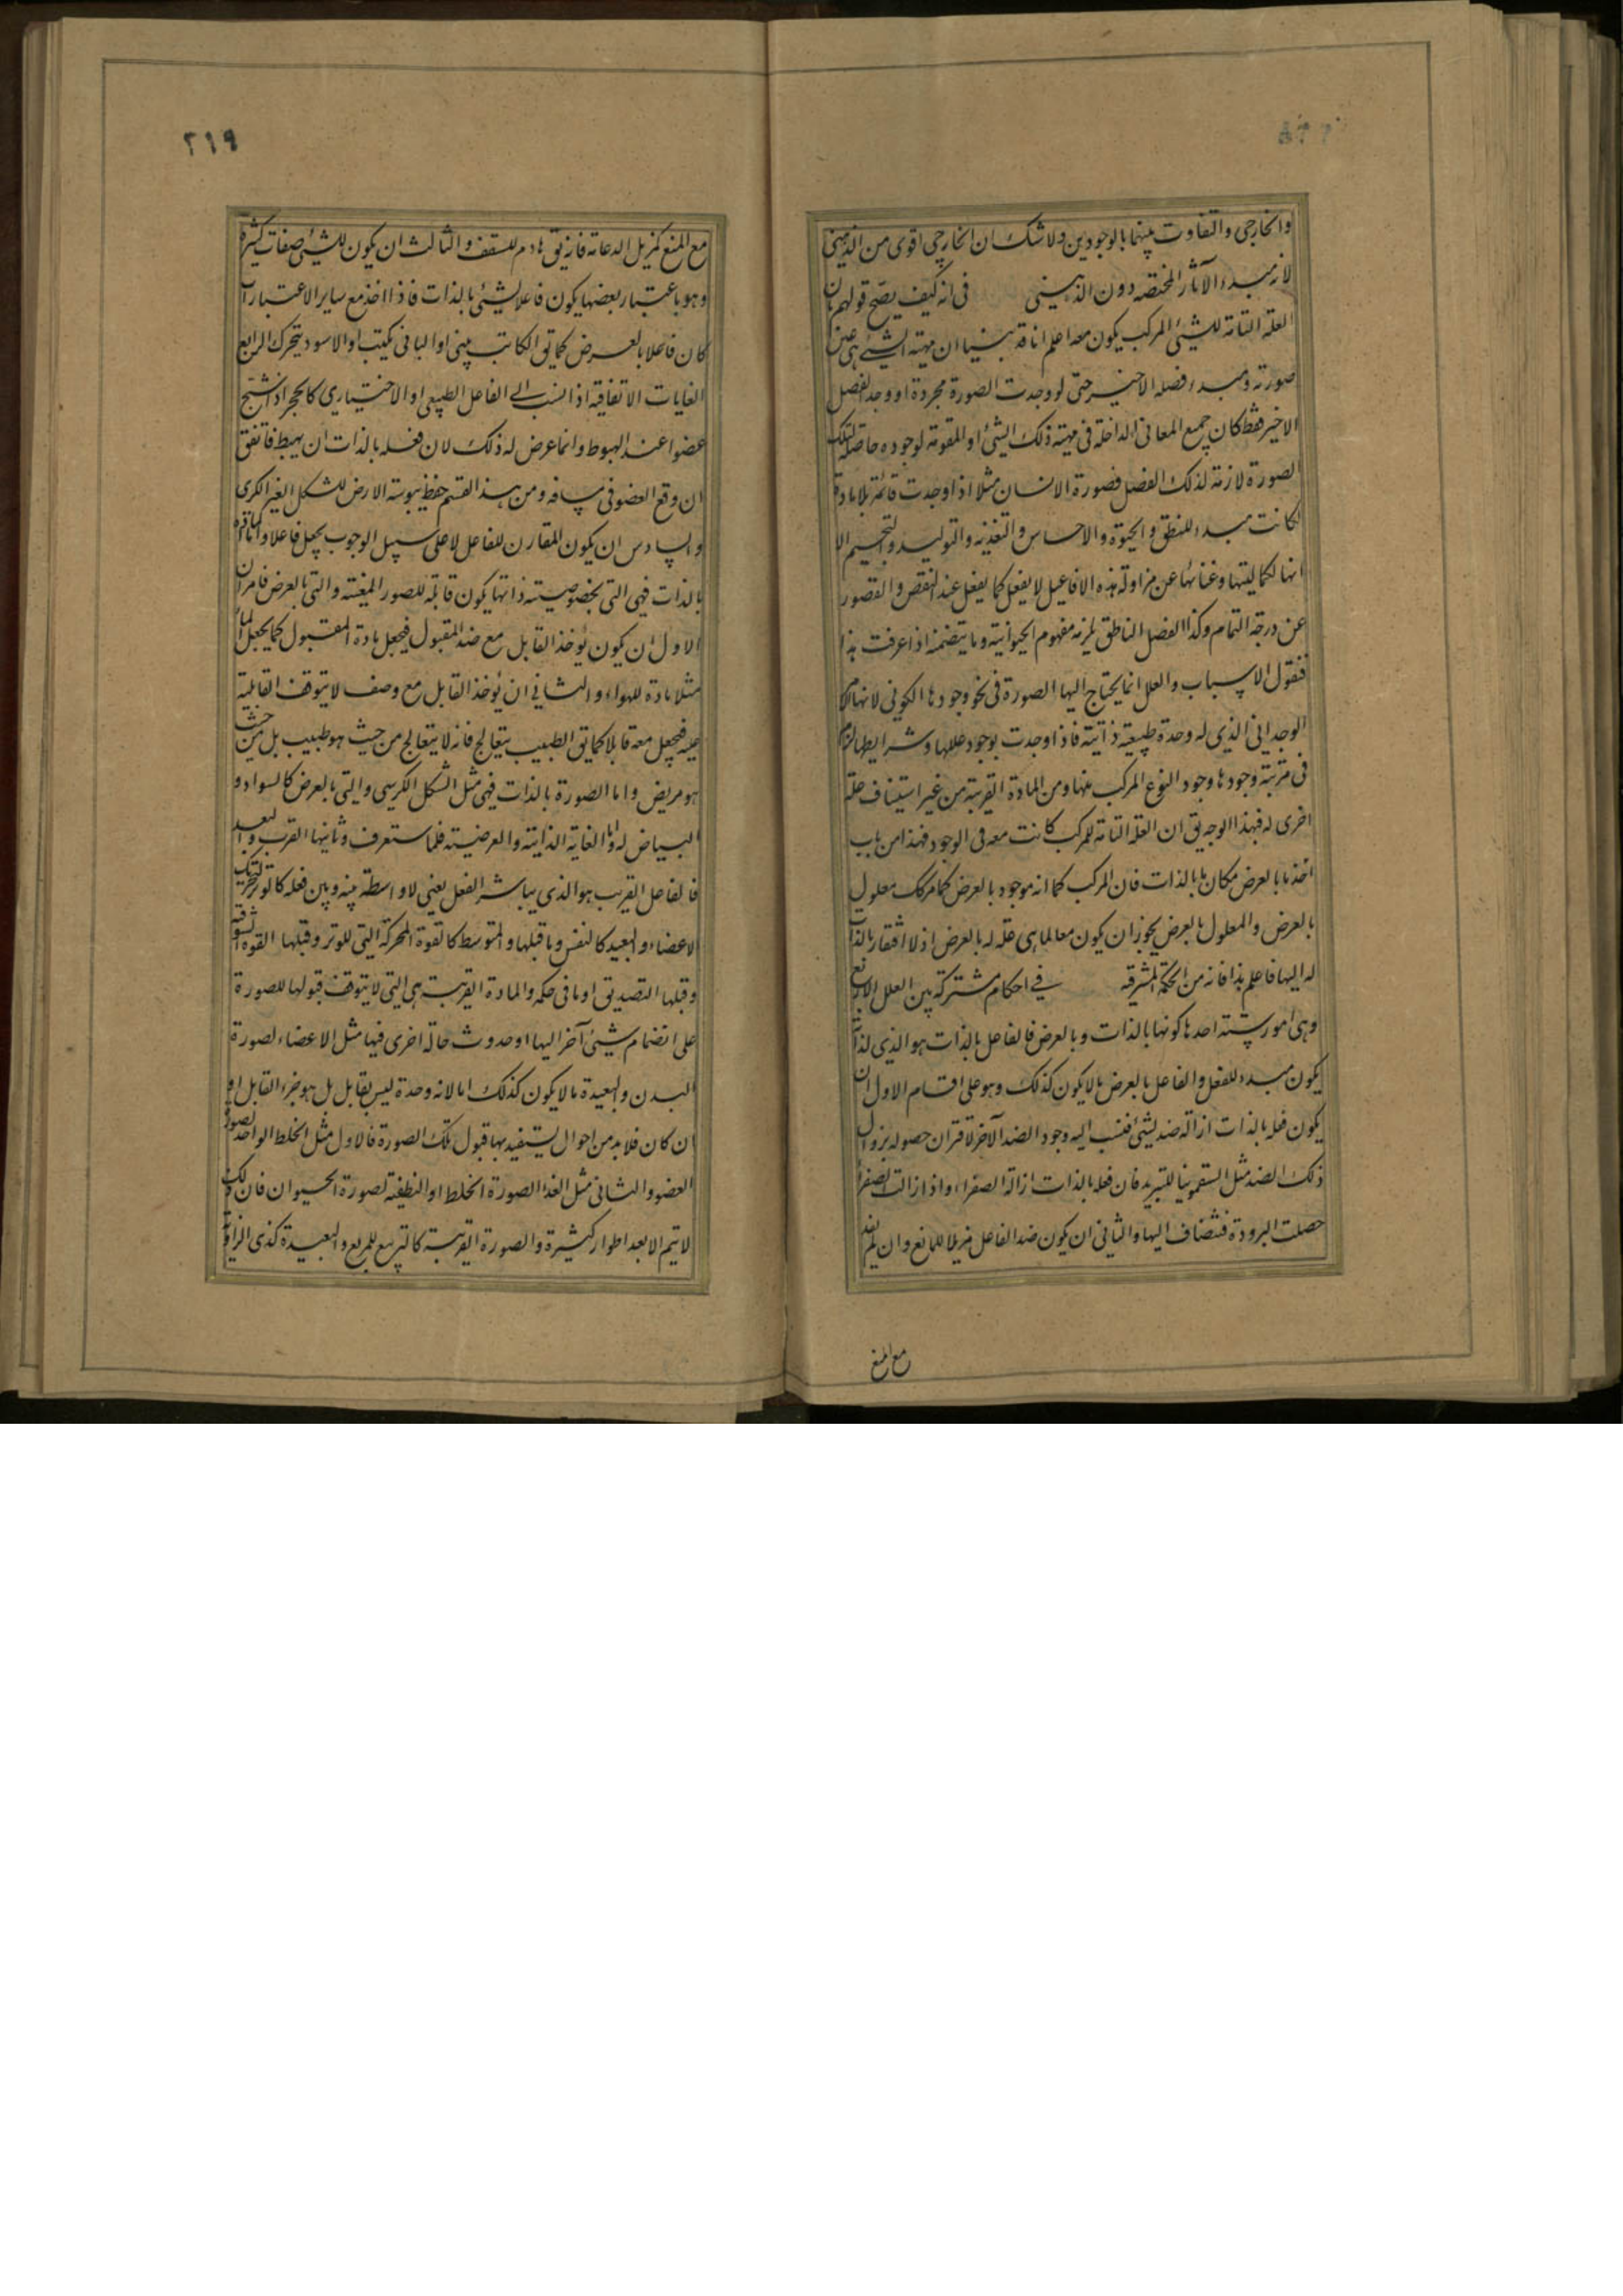 والخارجي والتفاوت بينهما بالوجودين ولا شك ان الخارجي اقوى من الذهني
لانه مبدء الآثار المختصه دون الذهني في انه كيف يصح قولهم بان
العلة التامة للشيء المركب يكون معه اعلم انا قد بينا ان مهية الشيء هي عين
صورته ومبدء فصله الاخير حتى لو وجدت الصورة مجردة او وجد الفصل
الاخير فقط كان جميع المعاني الداخلة في مهية ذلك الشيء او المقومة لوجوده حاصلة لتلك
الصورة لازمة لذلك الفصل فصورة الانسان مثلا اذا وجدت قائمة بلا مادة
لكانت مبدء للنطق والحيوة والاحساس والتغذيه والتوليد والتجسيم الا
انها لكماليتها وغنائها عن مزاولة هذه الافاعيل لا يفعل كما يفعل عند النقص والقصور
عن درجة التمام وكذا الفصل الناطق يلزمه مفهوم الحيوانية وما يتضمنه اذا عرفت هذا
فنقول الاسباب والعلل انما يحتاج اليها الصورة في نحو وجودها الكوني لانها الامر
الوحداني الذي له وحدة طبيعية ذاتية فاذا وجدت بوجود عللها وشرايطها لزم
في مرتبة وجودها وجود النوع المركب منها ومن المادة القريبة من غير استيناف علة
اخرى له فبهذا الوجه يق ان العلة التامة للمركب كانت معه في الوجود فهذا من باب
اخذ ما بالعرض مكان ما بالذات فان المركب كما انه موجود بالعرض كما مر كك معلول
بالعرض والمعلول بالعرض يجوز ان يكون معا لما هي علة له بالعرض اذ لا افتقار بالذات
له اليها فاعلم هذا فانه من الحكمة المشرقيه في احكام مشتركة بين العلل الاربع
وهي امور ستة احدها كونها بالذات وبالعرض فالفاعل بالذات هو الذي لذاته
يكون مبدء للفعل والفاعل بالعرض ما لا يكون كذلك وهو على اقسام الاول ان
يكون فعله بالذات ازالة ضد لشيء فنسب اليه وجود الضد الآخر لاقتران حصوله بزوال
ذلك الضد مثل السقمونيا للتبريد فان فعله بالذات ازالة الصفراء واذا زالت الصفراء
حصلت البرودة فتضاف اليها والثاني ان يكون ضد الفاعل مزيلا للمانع وان لم يفد
مع المنع
٢١٩
مع المنع كمزيل الدعامة فانه يق هادم للسقف والثالث ان يكون للشيء صفات كثيرة
وهو باعتبار بعضها يكون فاعلا لشيء بالذات فاذا اخذ مع ساير الاعتبارات
كان فاعلا بالعرض كما يق الكاتب يبني او الباني يكتب او الاسود يتحرك الرابع
الغايات الاتفاقيه اذا نسبت الى الفاعل الطبيعي او الاختياري كالحجر اذا شج
عضوا عند الهبوط وانما عرض له ذلك لان فعله بالذات ان يهبط فاتفق
ان وقع العضو في مسافه ومن هذا القسم حفظ يبوسة الارض للشكل الغير الكرى
والسادس ان يكون المقارن للفاعل لا على سبيل الوجوب يجعل فاعلا واما المادة
بالذات فهي التي بخصوصية ذاتها يكون قابلة للصور المعينة والتي بالعرض فامران
الاول ان يكون يؤخذ القابل مع ضد المقبول فيجعل مادة المقبول كما يجعل الماء
مثلا مادة للهواء والثاني ان يؤخذ القابل مع وصف لا يتوقف القابلية
عليه فيجعل معه قابلا كما يق الطبيب يتعالج فانه لا يتعالج من حيث هو طبيب بل من حيث
هو مريض واما الصورة بالذات فهي مثل الشكل الكرسي والتي بالعرض كالسواد و
البياض له واما الغاية الذاتية والعرضية فلما ستعرف وثانيها القرب والبعد
فالفاعل القريب هو الذي يباشر الفعل يعني لا واسطة بينه وبين فعله كالوتر لتحريك
الاعضاء والبعيد كالنفس وما قبلها والمتوسط كالقوة المحركة التي للوتر وقبلها القوة الشوقية
وقبلها التصديق او ما في حكمه والمادة القريبة هي التي لا يتوقف قبولها للصورة
على انضمام شيء آخر اليها او حدوث حالة اخرى فيها مثل الاعضاء لصورة
البدن والبعيدة ما لا يكون كذلك اما لانه وحدة ليس بقابل بل هو جزء القابل او
ان كان فلا بد من احوال يستفيد بها قبول تلك الصورة فالاول مثل الخلط الواحد لصورة
العضو والثاني مثل الغذا لصورة الخلط او النطفة لصورة الحيوان فان ذلك
لا يتم الا بعد اطوار كثيرة والصورة القريبة كالتربيع للمربع والبعيدة كذي الزاوية